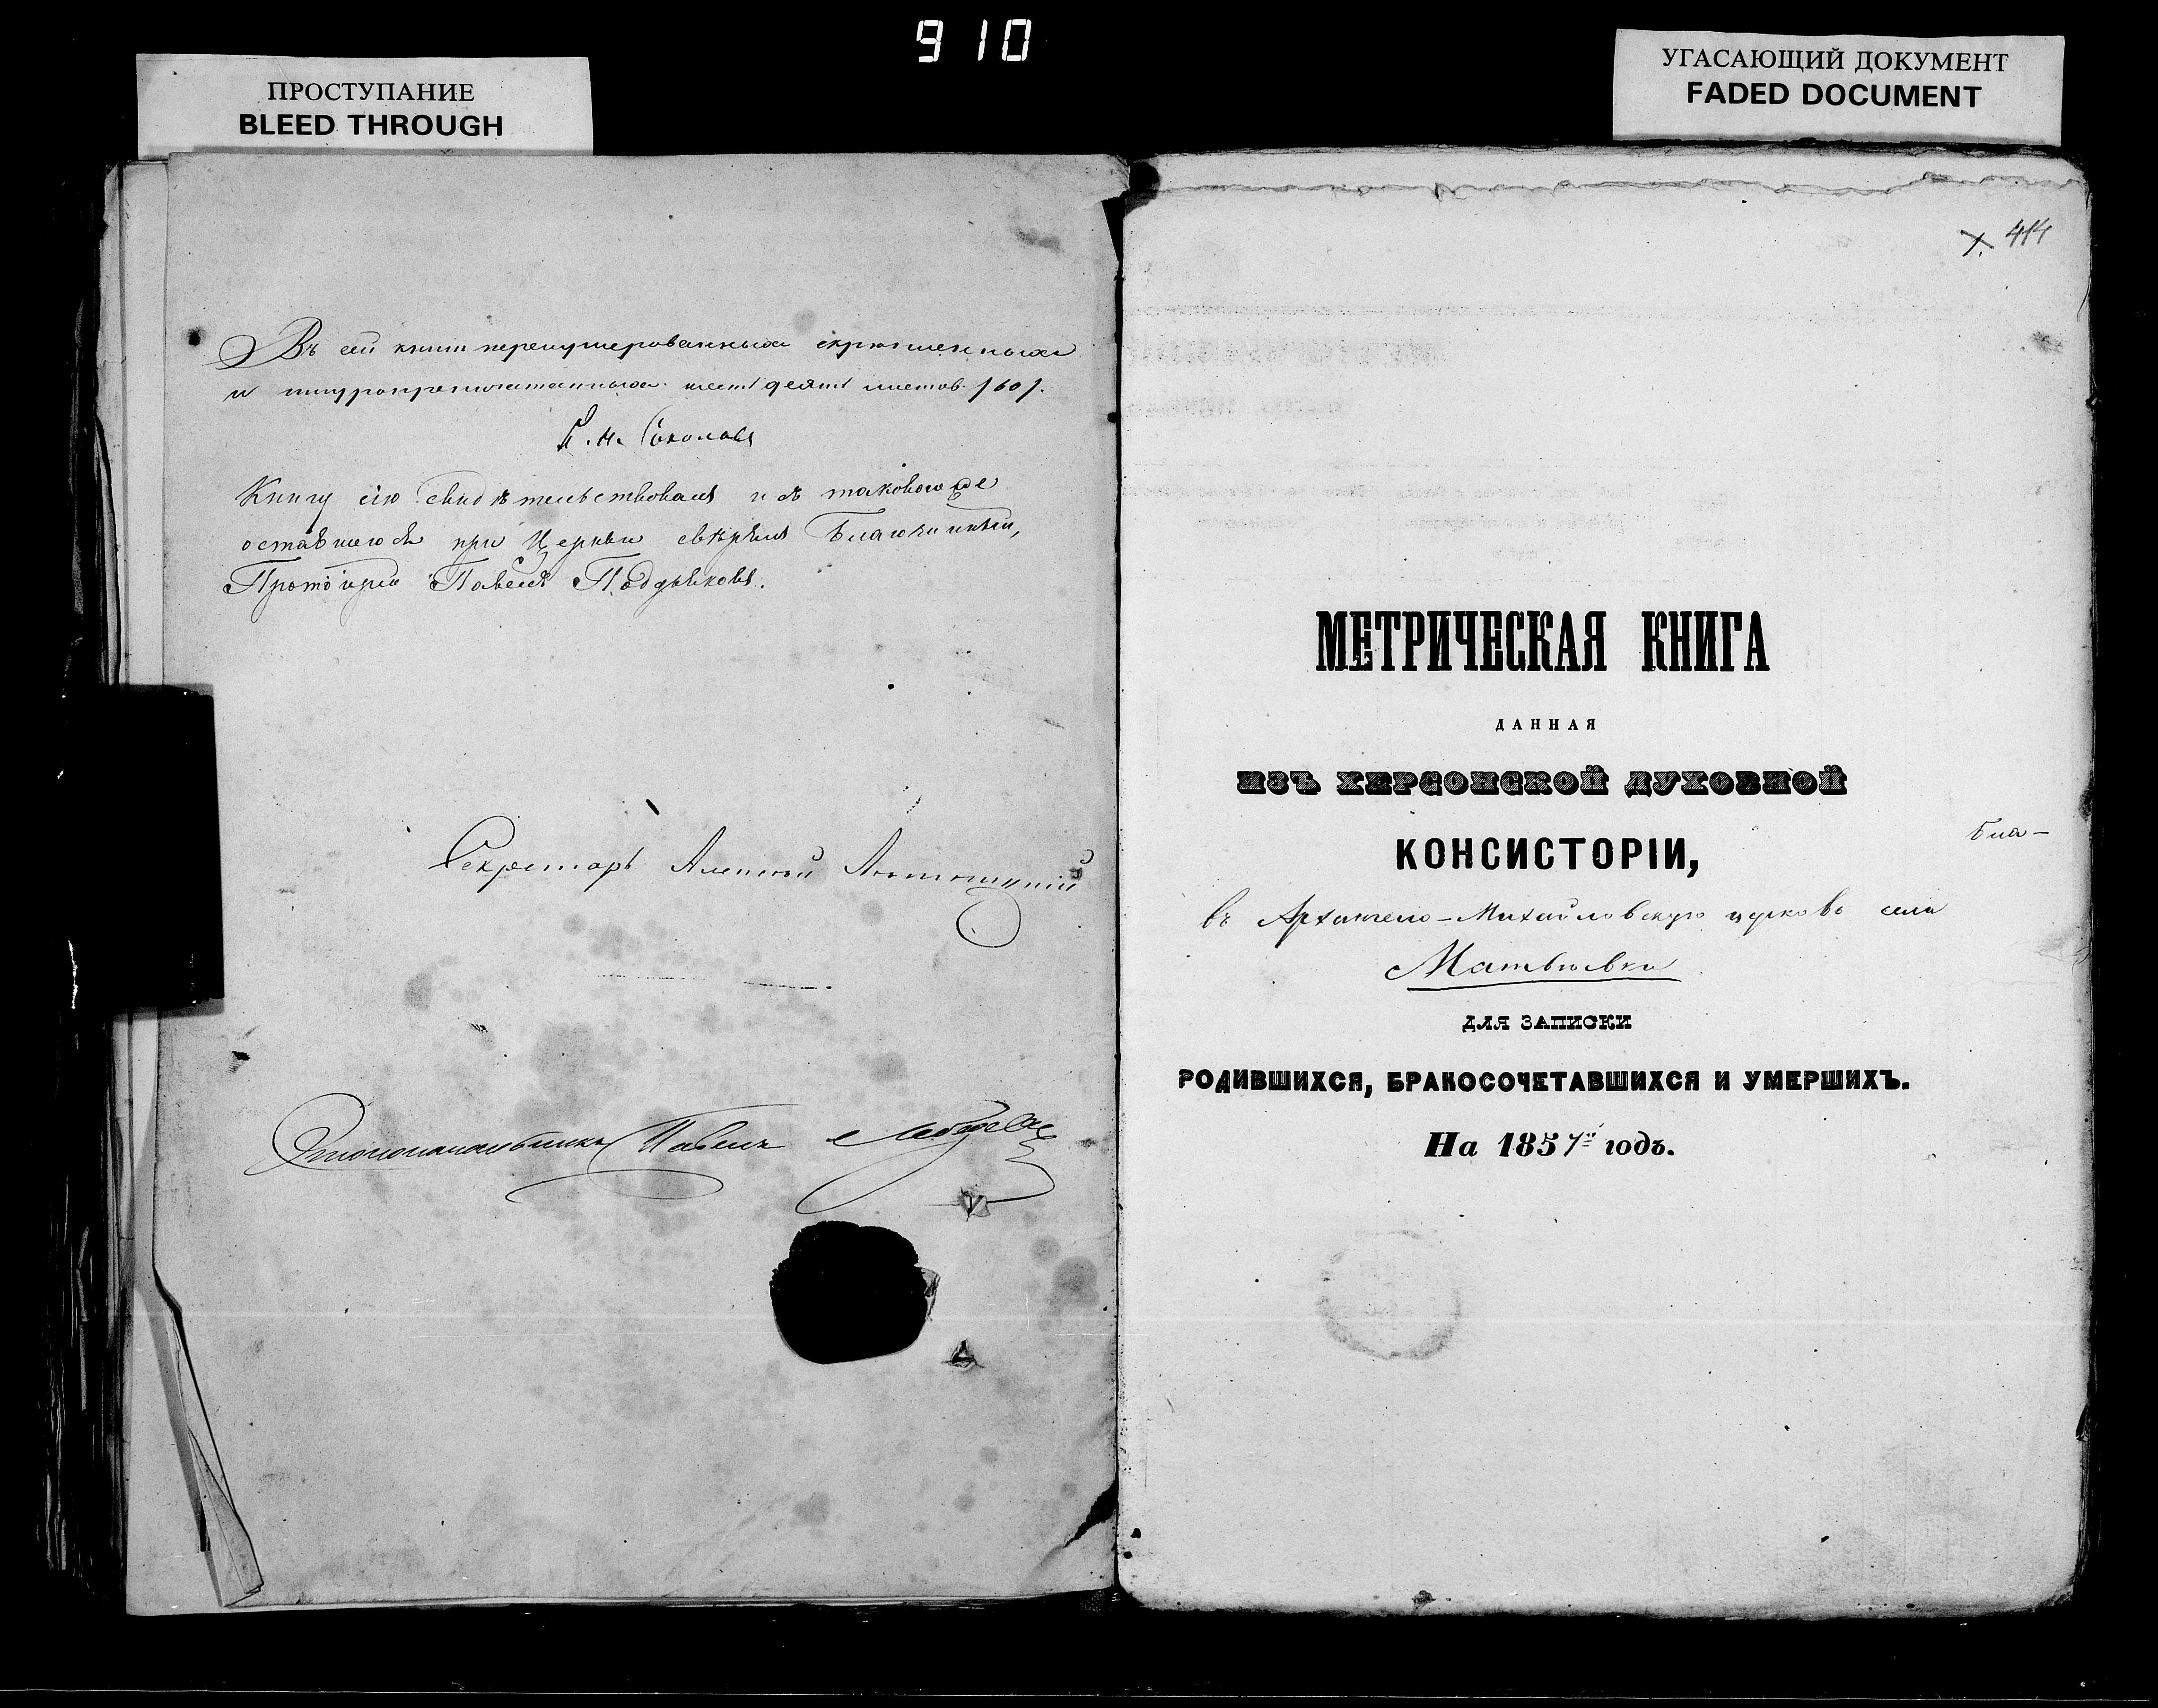 910
ПРОСТУПАНИЕ
BLEED THROUGH
УГАСАЮЩИЙ ДОКУМЕНТ
FADED DOCUMENT
Въ сей книгѣ перенумерованныхъ скрѣпленныхъ
и шнуропропечатанныхъ шестьдесятъ листовъ /60/.
Соколовъ
Книгу сію свидѣтельствовалъ и съ таковою же
оставшеюся при Церкви свѣрялъ Благочинный,
Протоіерей Павелъ
Секретарь Алексѣй
Столоначальникъ Павелъ Лебедевъ
1. 414
МЕТРИЧЕСКАЯ КНИГА
ДАННАЯ
ИЗЪ ХЕРСОНСКОЙ ДУХОВНОЙ
КОНСИСТОРІИ,
Бла-
въ Архангело-Михайловскую церковь села
Матвѣевки
ДЛЯ ЗАПИСКИ
РОДИВШИХСЯ, БРАКОСОЧЕТАВШИХСЯ И УМЕРШИХЪ.
На 1857й годъ.